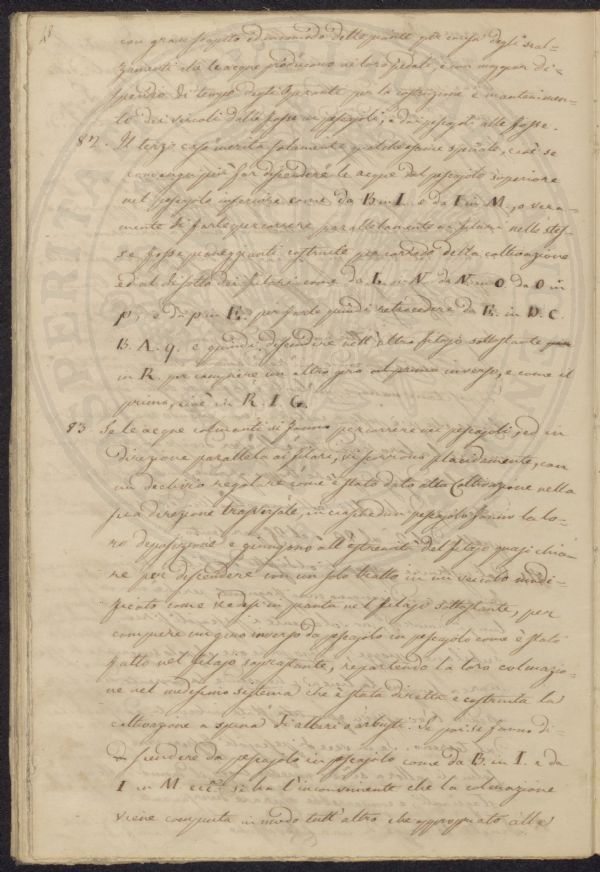 18
con gran scapito ed incomodo delle piante per causa degli scal-
zamenti che le acque producono ai loro pedali, e con maggior di-
spendio di tempo degli Operanti per la costruzione e mantenimen-
to dei veicoli dalle fosse ai pescajoli, e dai pescajoli alle fosse.
82. Il terzo caso merita solamente qualche esame speciale, cioè se
convenga più far discendere le acque dal pescajolo superiore
nel pescajolo inferiore come da B in I. e da I in M., o vera-
mente di farle percorrere parallelamente ai filari nelle stes-
se fosse pianeggianti costruite per corredo della coltivazione
ed al disotto dei filari come da L. in N. da N. in O da O in
p., e da p in E. per farle quindi retrocedere da E. in D. C.
B. A. q. e quindi discendere nell'altro filajo sottostante
in R per compiere un altro giro al primo inverso, e come il
primo, cioè in R. I. G.
83. Se le acque colmanti si fanno percorrere nei pescajoli, ed in
direzione parallela ai filari, vi scorrono placidamente, con
un declivio regolare come è stato dato alla Coltivazione nella
sua direzione trasversale, in ciaschedun pescajolo fanno la lo-
ro deposizione e giungono all'estremità del filajo quasi chia-
re per discendere con un solo tratto in un veicolo modi-
ficato come vedesi in pianta nel filajo sottostante, per
compiere un giro inverso da pescajolo in pescajolo come è stato
fatto nel filajo soprastante, repartendo la loro colmazio-
ne nel medesimo sistema che è stata diretta e costruita la
coltivazione a spina di alberi o arbusti. Se poi se fanno di-
scendere da pescajolo in pescajolo come da B. in I. e da
I in M ecc. si ha l'inconveniente che la colmazione
viene compiuta in modo tutt'altro che appropriato alla